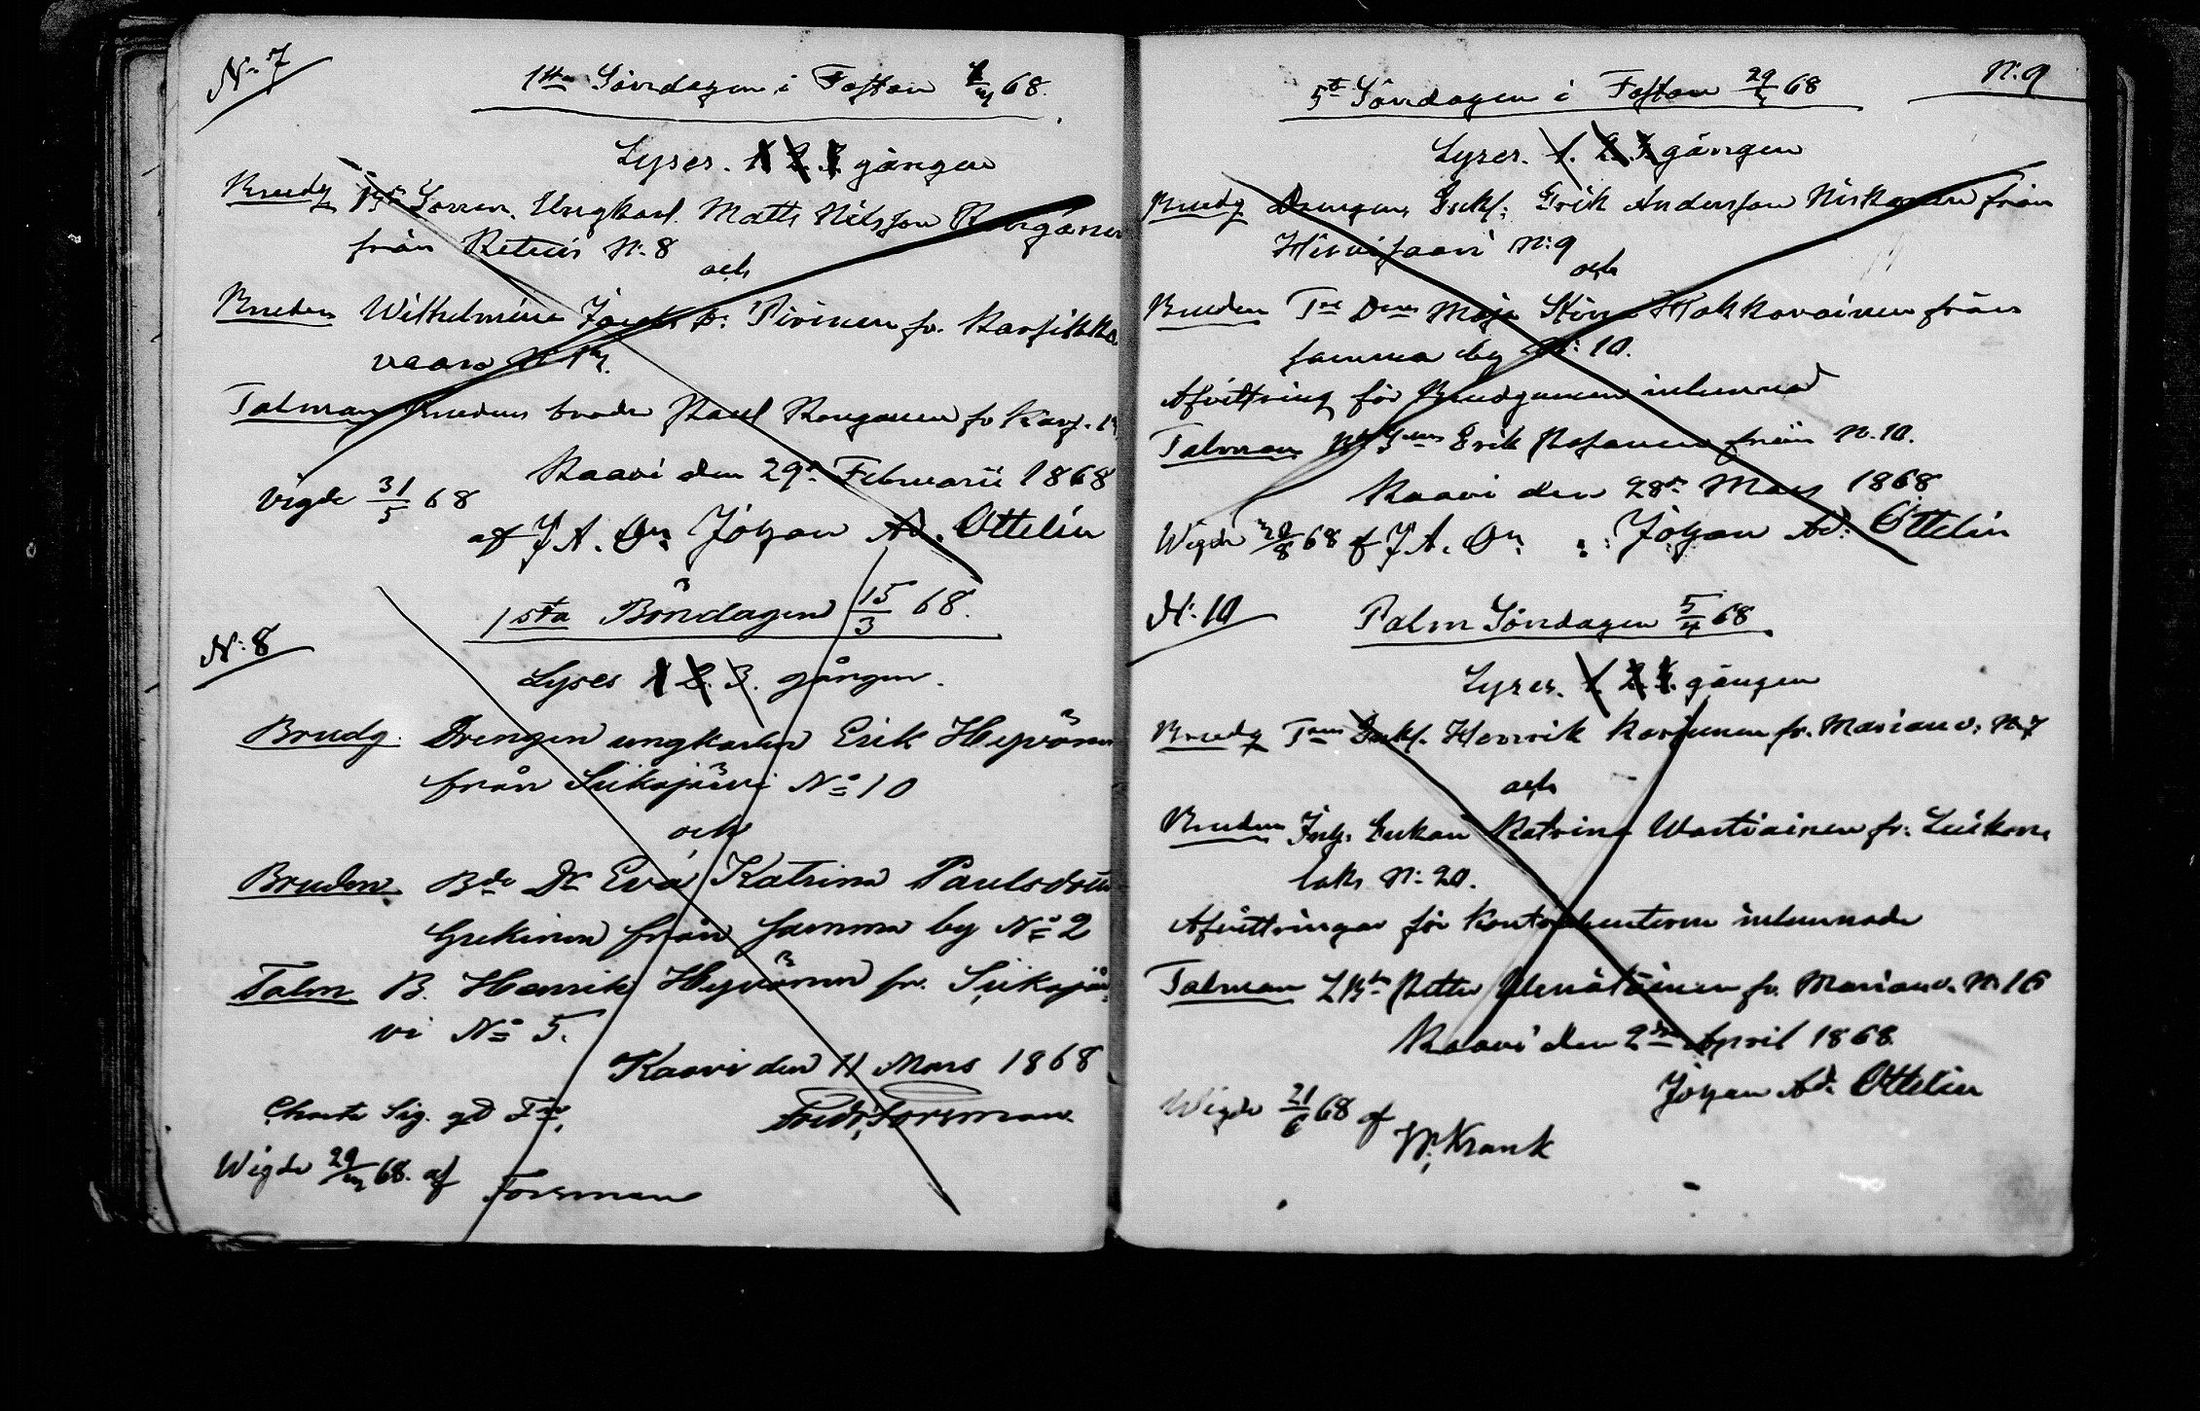 N:7
1sta Söndagen i Fastan 1/3 68.
Lyses. 1 2. 3. gången
Brudg Sonen. Ungkarl. Matts Nilsson
från N:8
och
Bruden Wilhelmina Jacobs D: Pirinen fr. Karsikka
vaara N:
Talman Brudens broder Paul fr Karj.
Kaavi den 29: Februarii 1868
Vigde 31/5 68
af J. A. On Johan Ad. Ottelin
1sta Böndagen 15/3 68.
N:8
Lyses 1 2. 3. gången.
Brudg. Drengen ungkarlen Erik Hyvönen
från Siikajärvi No 10
och
Bruden Bde Dr Eva Katrina Paulsdotter
från samma by No 2
Talm B. Henrik Hyvönen fr. Siikajär
vi No 5.
Kaavi den 11 Mars 1868
Charta Sig. gd
Fredr. Forsman
Wigde 29/3 68. af Forsman
N:9
5te Söndagen i Fastan 29/3 68
Lyses. 1. 2. 3. gången
Brudg Drengen, Enkl: Erik Andersson Niskanen från
Hirvisaari N:9
och
Bruden Maja Stina Hakkarainen från
samma by N:10.
Afvittring för Brudgummen inlemnad
Talman Erik från N:10.
Kaavi den 28de Mars 1868
Wigde /8 68 af J. A. On
Johan Ad: Ottelin
N:10
Palm Söndagen 5/4 68
Lyses. 1. 2. 3. gången
Brudg Enkl. Henrik Karjunen fr. Marianv. N:7
och
Bruden Enkan Katrina Wartiainen fr: Luikon
laks N:20.
Afvittringar för Kontrahenterna inlemnade
Talman Petter fr. Marianv. N:16
Kaavi den 2dra April 1868
Johan Ad: Ottelin
Wigde 21/6 68 af
W: Krank